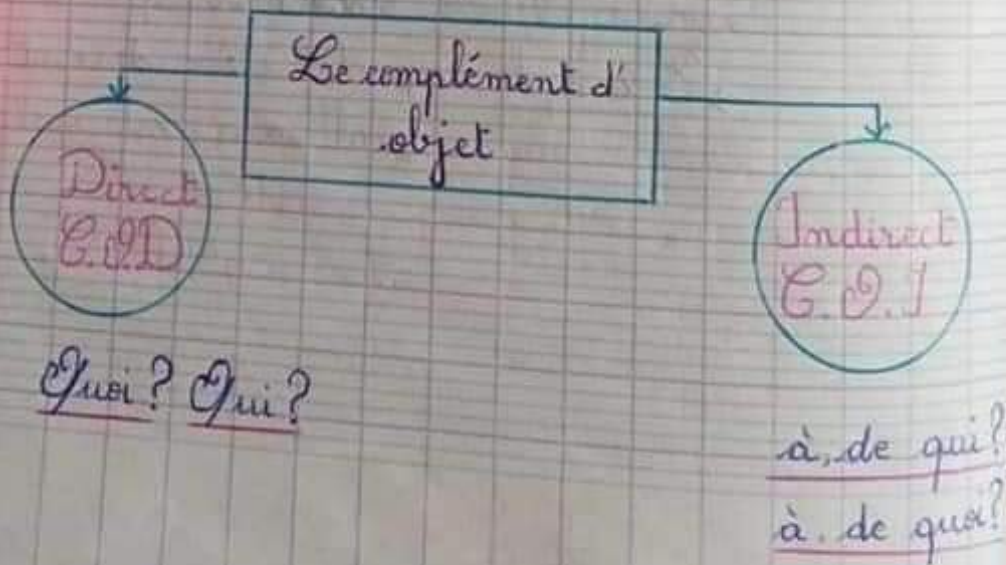 Le complément d'
objet
Direct
C.O.D
Indirect
C.O.I
Quoi? Qui?
à, de qui?
à, de quoi?